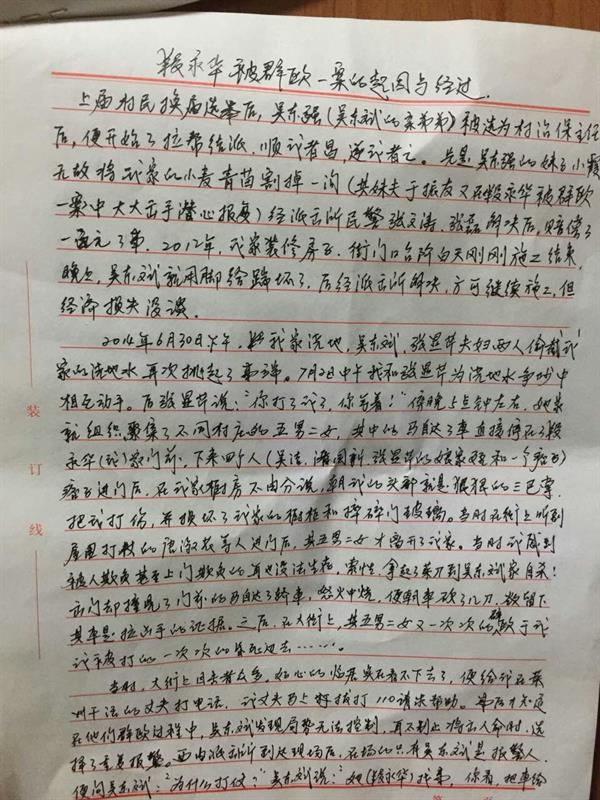 殷永华被群殴一案的起因与经过
上届村民换届选举后，吴东强(吴东斌的亲弟弟)被选为村治保主任
后，便开始了拉帮结派，顺我者昌，逆我者亡。先是吴东强的妹
无故将我家的小麦青苗割掉一沟(其妹夫于振友又在殷永华被群殴
一案中大大出手潜心报复)经派出所民警张文涛、张磊解决后，赔偿了
一百元了事。2012年，我家装修房子，街门口台阶白天刚刚施工结束，
晚上，吴东斌就用脚给踩坏了，后经派出所解决，方可继续施工，但
经济损失没谈。
2014年6月30日下午，我家浇地，吴东斌，张显芹夫妇两人偷截我
家的浇地水再次挑起了事端。7月2日中午我和张显芹为浇地水争吵中
相互动手。后张显芹说："你打了我了，你等着！"傍晚5点钟左右，她家
就组织聚集了不同村庄的五男二女，其中的马自达3车直接停在了殷
永华(我)家门前，下来四个人(吴洁、张显芹的娘家侄和一个
进门后，在我家橱房不由分说，朝我的头部就是狠狠的三巴掌，
把我打伤，并损坏了我家的橱柜和摔碎门玻璃。当时在街上听到
屋里打救的等人进门后，其五男二女才离开了我家。当时我感到
被人欺负甚至上门欺负的再也没法生存，索性，拿起了菜刀到吴东斌家自杀！
出门却撞见了门前的马自达3轿车，怒火中烧，便朝车砍了几刀，
其车是拉凶手的证据。之后，在大街上，其五男二女又一次次的殴于我
我被打的一次次的昏死过去……。
当时，大街上目击者众多。好心的邻居实在看不下去了，便给我在
干活的丈夫打电话，我丈夫马上拨打110请求帮助。
在他们群殴过程中，吴东斌发现局势无法控制，再不制止将出人命时，选
择了重复报警。西由派出所到达现场后，在场的只有吴东斌是报警人，
便问吴东斌："为什么打仗？"吴东斌说："她(殷永华)找事，你看，把车给
装
订
线